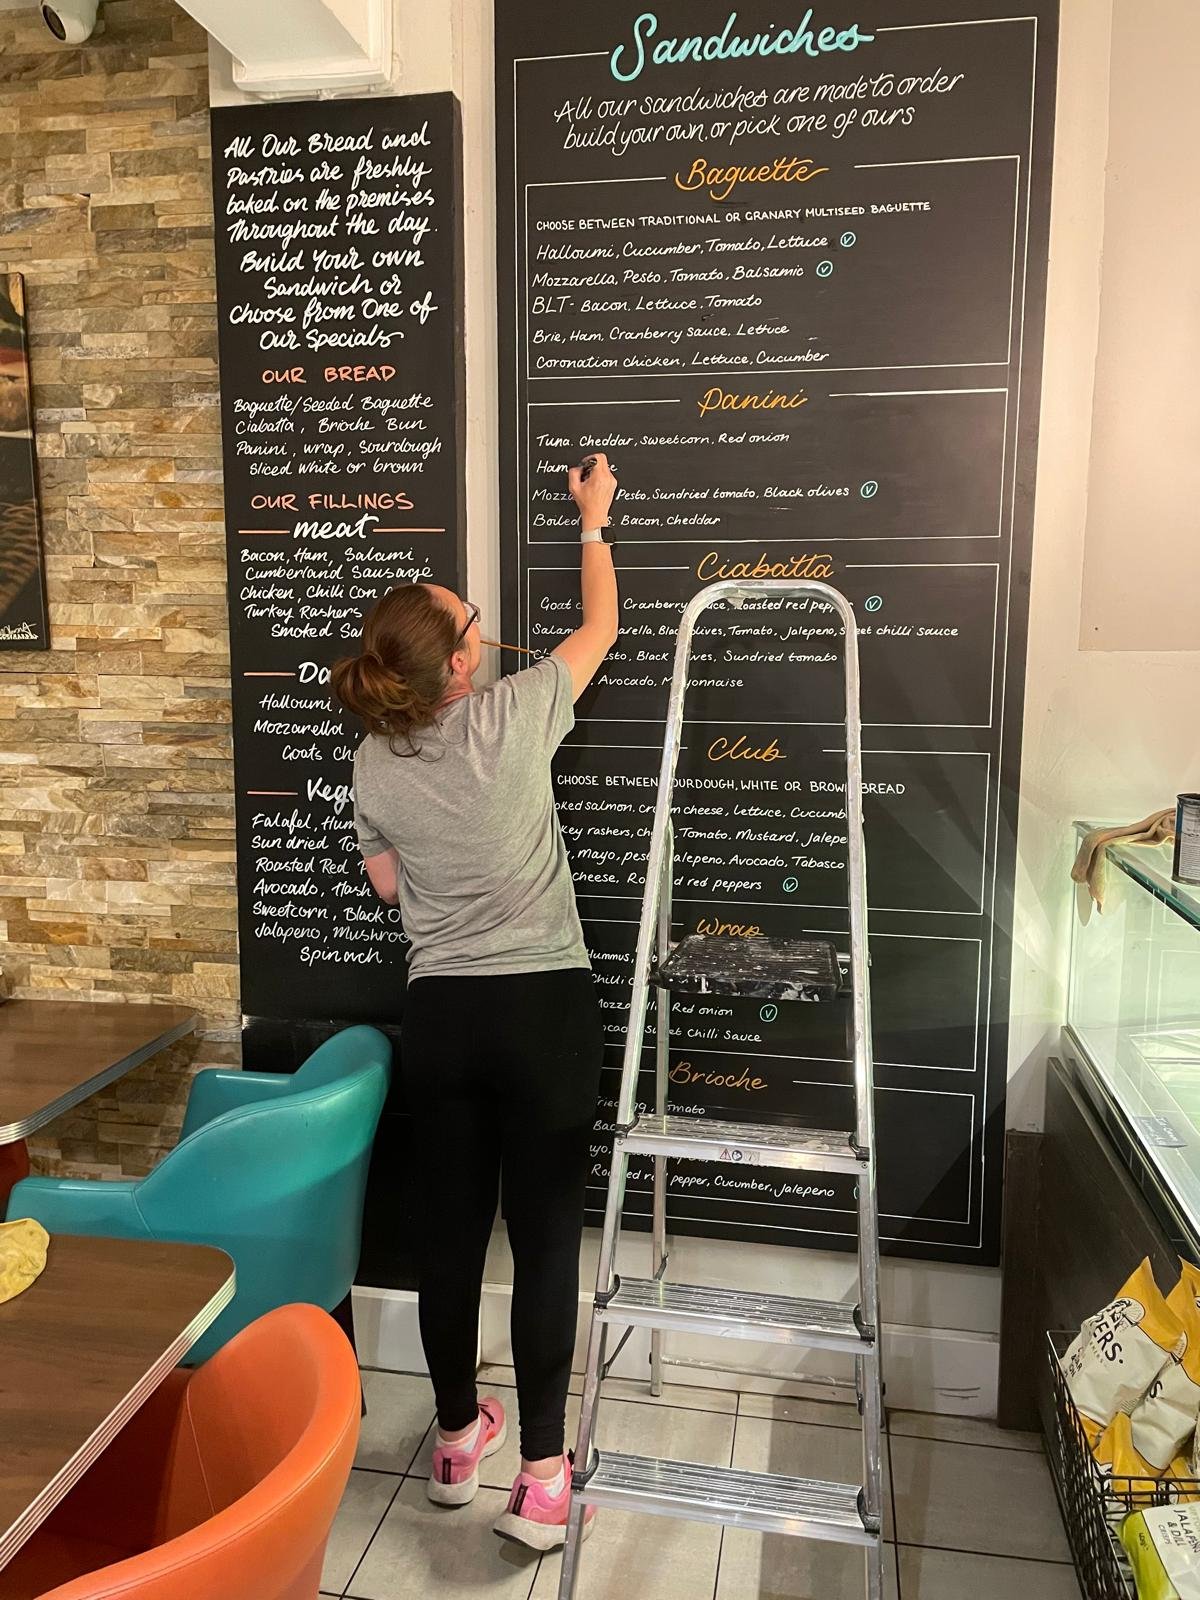 All Our Bread and
Pastries are freshly
baked on the premises
throughout the day.
Build Your own
Sandwich or
Choose from One of
Our Specials
OUR BREAD
Baguette/Seeded Baguette
Ciabatta, Brioche Bun
Panini, wrap, Sourdough
Sliced white or brown
OUR FILLINGS
meat
Bacon, Ham, Salami,
Cumberland Sausage
Chicken, Chilli Con
Turkey Rashers
Smoked
Halloumi,
Mozzarella,
Goats
Falafel,
Sun dried
Roasted Red
Avocado, Hash
Sweetcorn, Black
Jalapeno,
Spinach.
Sandwiches
All our sandwiches are made to order
build your own, or pick one of ours
Baguette
CHOOSE BETWEEN TRADITIONAL OR GRANARY MULTISEED BAGUETTE
Halloumi, Cucumber, Tomato, Lettuce V
Mozzarella, Pesto, Tomato, Balsamic V
BLT- Bacon, Lettuce, Tomato
Brie, Ham, Cranberry sauce, Lettuce
Coronation chicken, Lettuce, Cucumber
Panini
Tuna, Cheddar, sweetcorn, Red onion
Ham
Pesto, Sundried tomato, Black olives V
Boiled Bacon, Cheddar
Ciabatta
Goat Cranberry Roasted red V
Salami Tomato, Jalepeno, chilli sauce
Black Sundried tomato
Avocado,
Club
CHOOSE BETWEEN WHITE OR BROWN BREAD
salmon, cheese, lettuce,
rashers, Tomato, Mustard,
Mayo, Avocado, Tabasco
cheese, red peppers V
Wrap
Hummus,
Chilli
Red onion V
Chilli Sauce
Brioche
pepper, Cucumber, Jalepeno
JALAPEÑO
& DILL
CRISPS